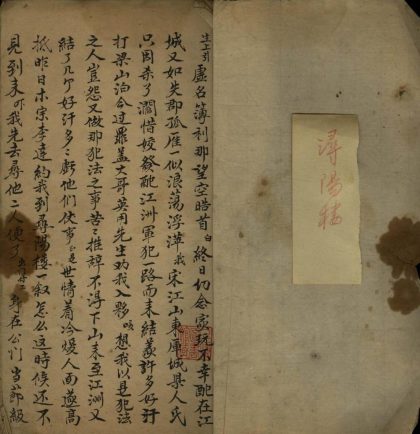 潯陽楼
生上引 虛名簿利那望空皓首 白 終日切念家玩不幸配在江
城又如失郡孤雁一似浪蕩浮萍 我 宋江山東庫城县人氏
只因杀了濶惜姣發配江洲軍犯一路而来結義許多好汗
打梁山泊合过罪盖大哥英用先生劝我入夥 咳 想我以是犯法
之人豈怨又做那犯法之事苦々推辞不淂下山来至江洲又
結了几个好汗多々虧他們仗事正是世情看冷煖人面遂高
抵昨日木宗李逵約我到尋陽楼一叙怎么这時候还不
見到来吓我先去尋他二人便了 身在公门當節級